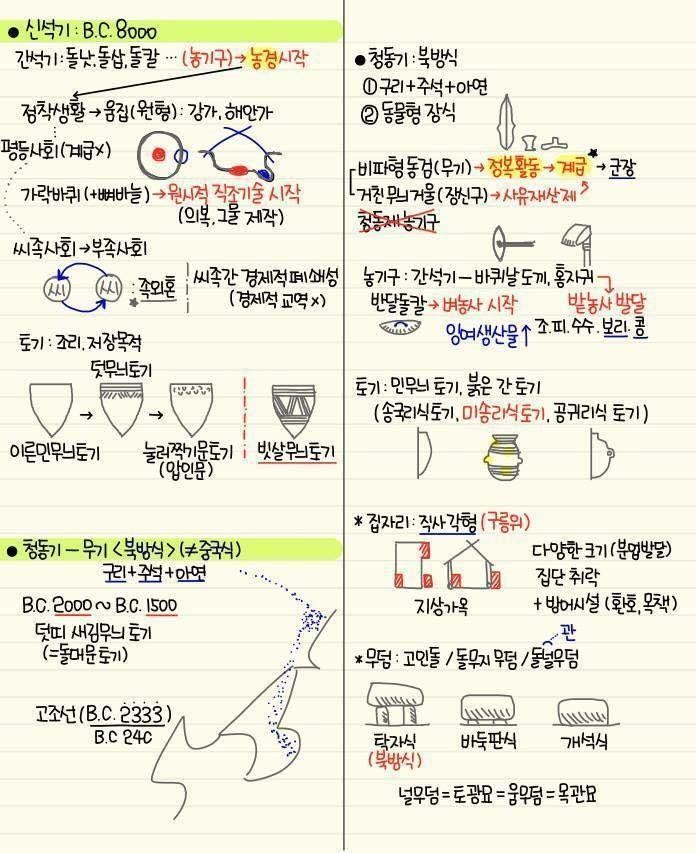 ● 신석기 : B.C. 8000
간석기 : 돌낫, 돌삽, 돌칼 … (농기구) → 농경시작
정착생활 → 움집(원형) : 강가, 해안가
평등사회 (계급X)
가락바퀴 (+뼈바늘) → 원시적 직조기술 시작
(의복, 그물 제작)
씨족사회 → 부족사회
씨 씨 : 족외혼
★
씨족간 경제적 폐쇄성
(경제적 교역 X)
토기 : 조리, 저장목적
덧무늬토기
→ →
이른민무늬토기 눌러찍기문토기 빗살무늬토기
(압인문)
● 청동기 - 무기 <북방식> (≠중국식)
구리+주석+아연
B.C. 2000 ~ B.C. 1500
덧띠 새김무늬 토기
(=돌대문토기)
고조선 (B.C. 2333)
B.C 240
● 청동기 : 북방식
① 구리+주석+아연
② 동물형 장식
비파형동검 (무기) → 정복활동 → 계급 → 군장
★
거친무늬거울 (장신구) → 사유재산제
청동제 농기구
농기구 : 간석기 - 바퀴날 도끼, 홈자귀
반달돌칼 → 벼농사 시작 밭농사 발달
잉여생산물↑ 조.피.수수.보리.콩
토기 : 민무늬 토기, 붉은 간 토기
(송국리식토기, 미송리식토기, 공귀리식 토기)
* 집자리 : 직사각형 (구릉위)
다양한 크기 (분업발달)
집단 취락
지상가옥 + 방어시설 (환호, 목책)
관
* 무덤 : 고인돌 / 돌무지 무덤 / 돌널무덤
탁자식 바둑판식 개석식
(북방식)
널무덤 = 토광묘 = 움무덤 = 목관묘